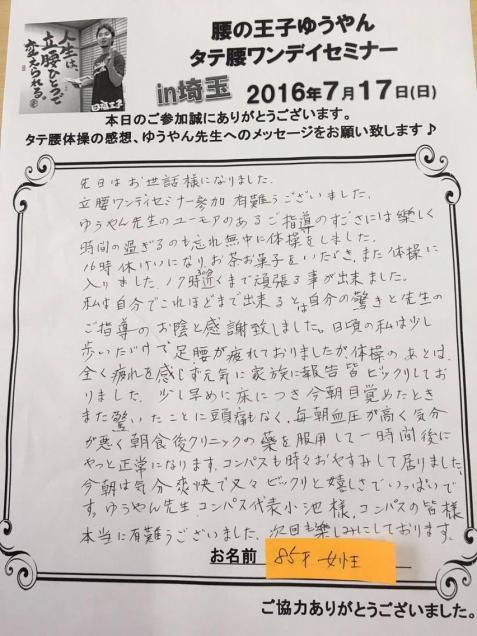 人生は、
立腰ひとつで
変えられる。
腰の王子ゆうやん
タテ腰ワンデイセミナー
in埼玉 2016年7月17日(日)
本日のご参加誠にありがとうございます。
タテ腰体操の感想、ゆうやん先生へのメッセージをお願い致します♪
先日はお世話様になりました。
立腰ワンデイセミナー参加 有難うございました。
ゆうやん先生のユーモアのあるご指導のすごさには樂しく
時間の過ぎるのも忘れ無中に体操をしました。
16時休けいになりお茶お菓子をいただき、また体操に
入りました。17時近くまで頑張る事が出来ました。
私は自分でこれほどまで出来るとは自分の驚きと先生の
ご指導のお陰と感謝致しました。日頃の私は少し
歩いただけで足腰が疲れておりましたが、体操のあとは、
全く疲れを感じず元気に家族に報告皆ビックリしてお
りました。少し早めに床につき今朝目覚めたとき
また驚いたことに頭痛もなく、毎朝血圧が高く気分
が悪く朝食後クリニックの薬を服用して一時間後に
やっと正常になります。コンパスも時々おやすみして居りました。
今朝は気分爽快で又々ビックリと嬉しさでいっぱいで
す。ゆうやん先生コンパス代表小池様、コンパスの皆様
本当に有難うございました。次回も楽しみにしております。
お名前 85才 女性
ご協力ありがとうございました。